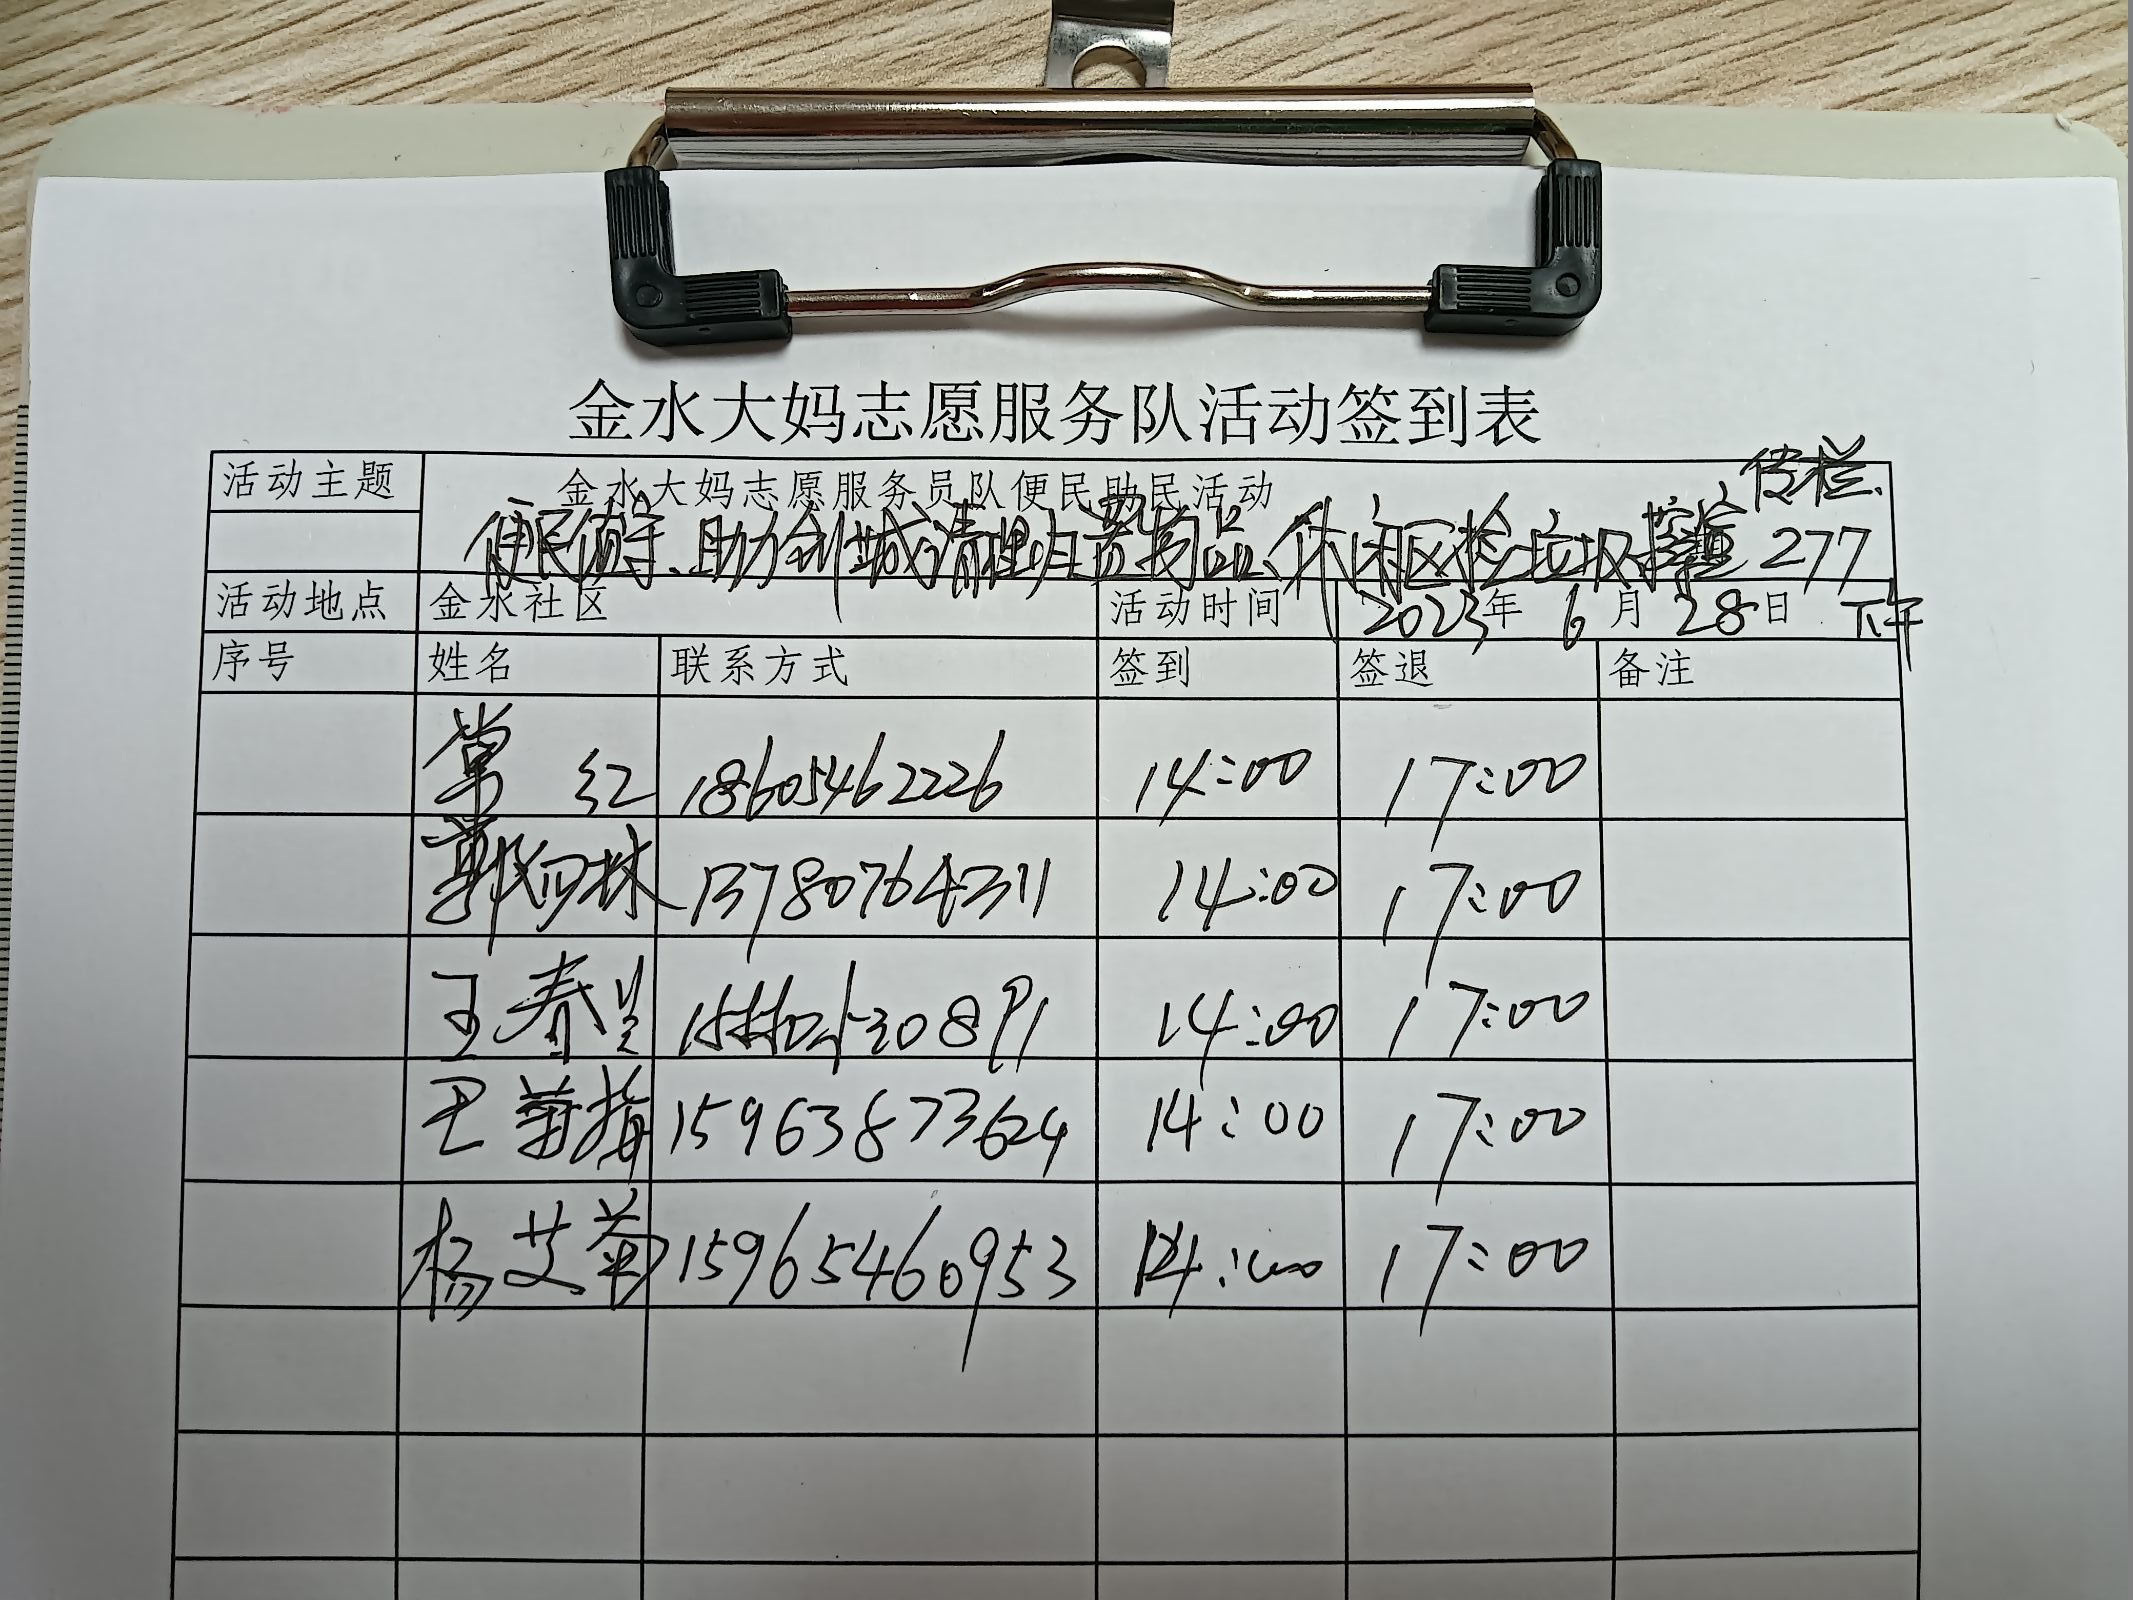 金水大妈志愿服务队活动签到表
活动主题 金水大妈志愿服务员队便民助民活动
传栏、
便民值守、助力创城清理归置物品、休闲区捡垃圾 277
活动地点 金水社区 活动时间 2023年 6月 28日 下午
序号 姓名 联系方式 签到 签退 备注
常 红 18605462226 14:00 17:00
郭向林 13780764311 14:00 17:00
王春 14:00 17:00
王菊梅 15963873624 14:00 17:00
杨艾菊 15965460953 14:00 17:00